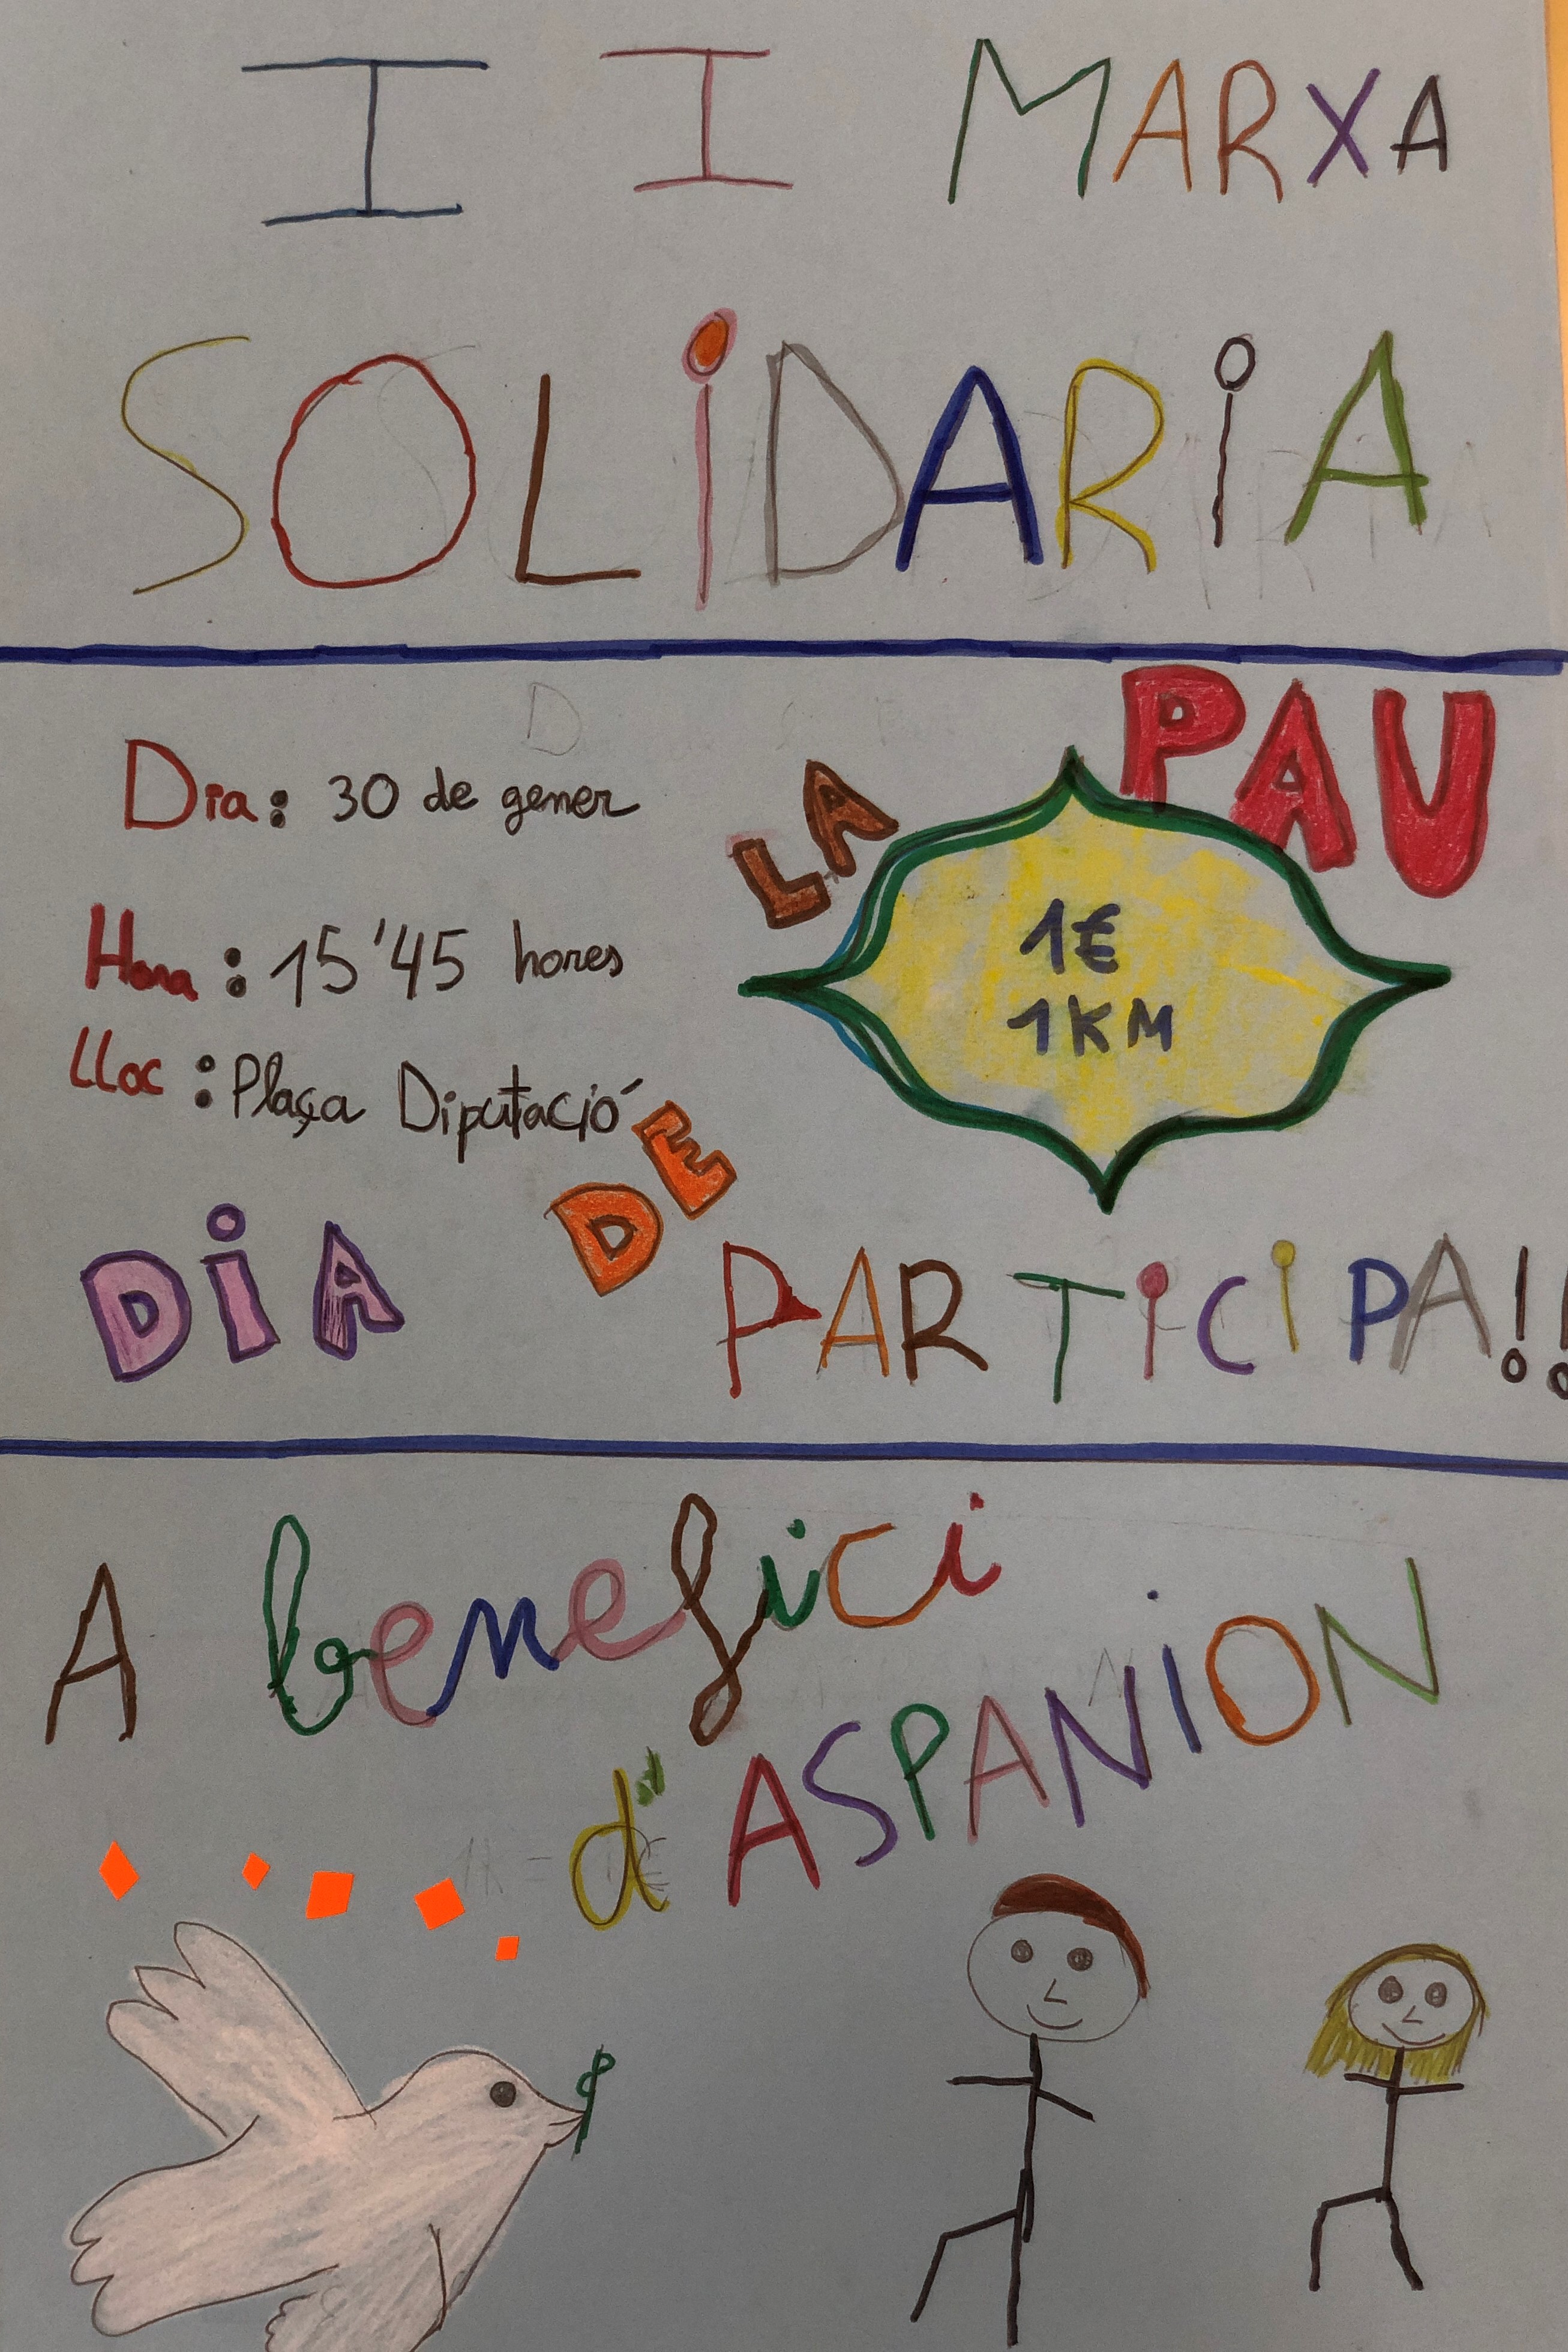 II MARXA
SOLiDARiA
Dia: 30 de gener
Hora: 15'45 hores
Lloc: Plaça Diputació
DiA DE LA PAU
1€
1KM
PARTiCiPA!!
A benefici
d'ASPANiON